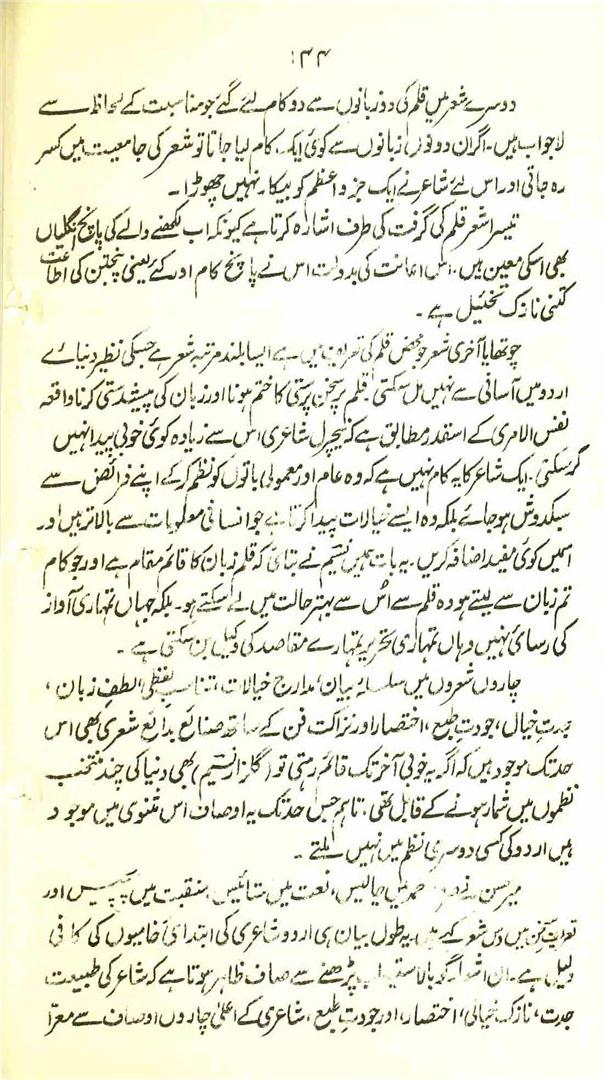 ۱۴۴
دوسرے شعر میں قلم کی دو زبانوں سے دو کام لئے گئے جو مناسبت کے لحاظ سے
لاجواب ہیں۔ اگر ان دونوں زبانوں سے کوئی ایک کام لیا جاتا تو شعر کی جامعیت میں کسر
رہ جاتی اور اس لئے شاعر نے ایک جزو اعظم کو بیکار نہیں چھوڑا۔
تیسرا شعر قلم کی گرفت کی طرف اشارہ کرتا ہے کیونکہ اب لکھنے والے کی پانچ انگلیاں
بھی اسکی معین ہیں۔ اس اعانت کی بدولت اس نے پانچ کام اور کئے یعنی پنجتن کی اطاعت
کتنی نازک تخئیل ہے۔
چوتھا یا آخری شعر جو محض قلم کی تعریف میں ہے ایسا بلند مرتبہ شعر ہے جسکی نظیر دنیائے
اردو میں آسانی سے نہیں مل سکتی۔ قلم پر سخن پرستی کا ختم ہونا اور زبان کی پیشدستی کرنا واقعہ
نفس الامری کے اسقدر مطابق ہے کہ نیچرل شاعری اس سے زیادہ کوئی خوبی پیدا نہیں
کرسکتی۔ ایک شاعر کا یہ کام نہیں ہے کہ وہ عام اور معمولی باتوں کو نظم کرکے اپنے فرائض سے
سبکدوش ہوجائے بلکہ وہ ایسے خیالات پیدا کرتا ہے جو انسانی معلومات سے بالاتر ہیں اور
اسمیں کوئی مفید اضافہ کریں۔ یہ بات ہمیں نسیم نے بتائی کہ قلم زبان کا قائم مقام ہے اور جو کام
تم زبان سے لیتے ہو وہ قلم سے اُس سے بہتر حالت میں لے سکتے ہو۔ بلکہ جہاں تمہاری آواز
کی رسائی نہیں وہاں تمہاری تحریر تمہارے مقاصد کی وکیل بن سکتی ہے۔
چاروں شعروں میں سلسلۂ بیان، مدارج خیالات، تناسب لفظی، لطفِ زبان،
جدتِ خیال، جودتِ طبع، اختصار اور نزاکت فن کے ساتھ صنائع بدائع شعری بھی اس
حد تک موجود ہیں کہ اگر یہ خوبی آخر تک قائم رہتی تو (گلزار نسیم) بھی دنیا کی چند منتخب
نظموں میں شمار ہونے کے قابل تھی، تاہم جس حد تک یہ اوصاف اس مثنوی میں موجود
ہیں اردو کی کسی دوسری نظم میں نہیں ملتے۔
میر حسن نے حمد میں چالیس، نعت میں ستائیس، منقبت میں پچیس اور
تعریف سخن میں دس شعر کہے ہیں، یہ طول بیان ہی اردو شاعری کی ابتدائی خامیوں کی کافی
دلیل ہے۔ ان اشعار کو بالاستیعاب پڑھنے سے صاف ظاہر ہوتا ہے کہ شاعر کی طبیعت
جدت، نازک خیالی، اختصار، اور جودتِ طبع، شاعری کے اعلیٰ چاروں اوصاف سے معرّا